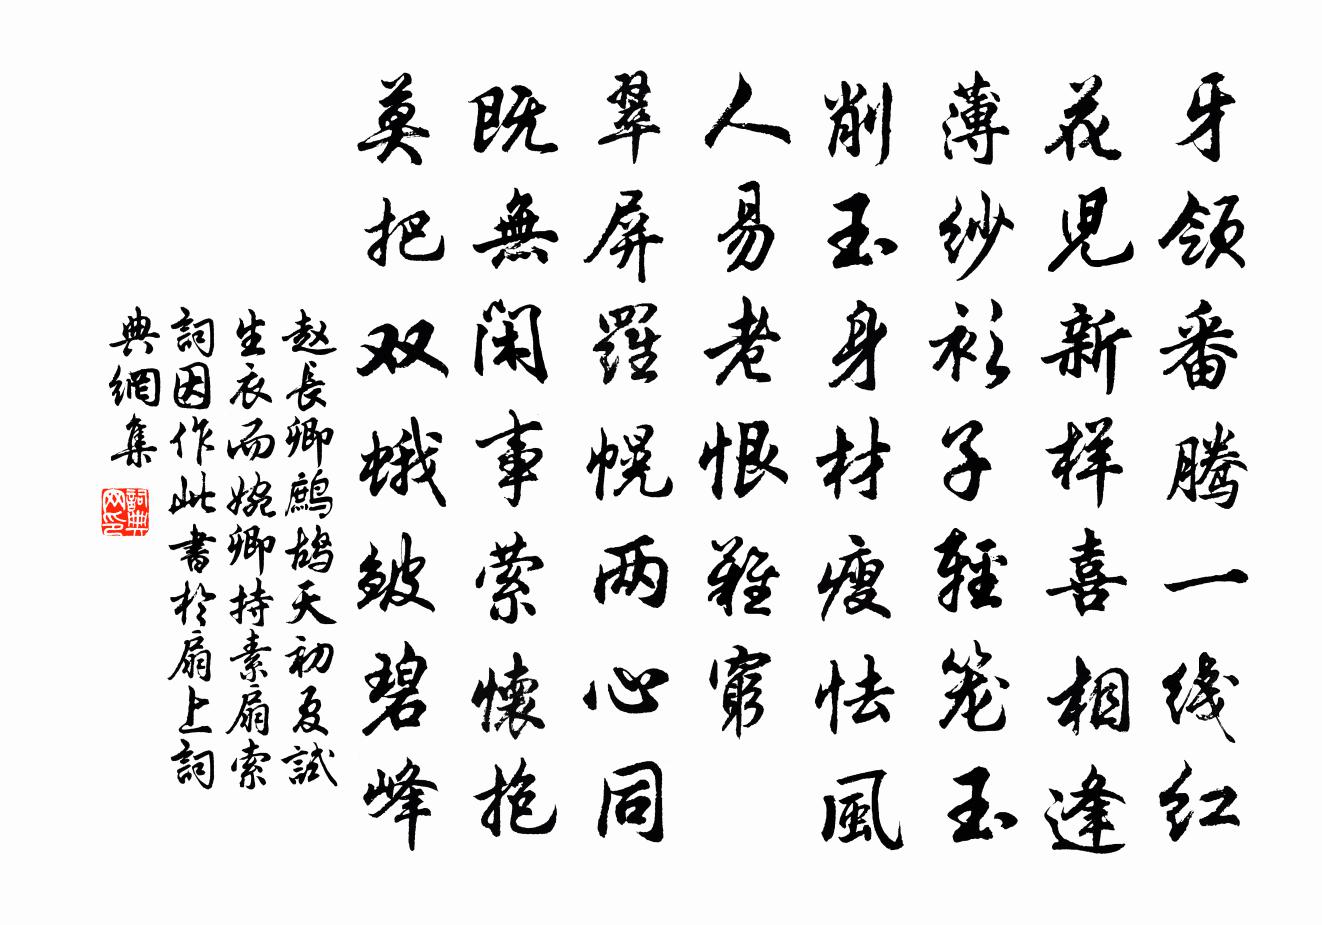 牙领番騰一线红
花児新样喜相逢
薄纱衫子輕笼玉
削玉身材瘦怯風
人易老恨難窮
翠屏羅幌两心同
既無閑事萦懷抱
莫把双蛾皱碧峰
赵長卿鷓鸪天初夏試
生衣而婉卿持素扇索
詞因作此書於扇上詞
典網集
詞典
网印